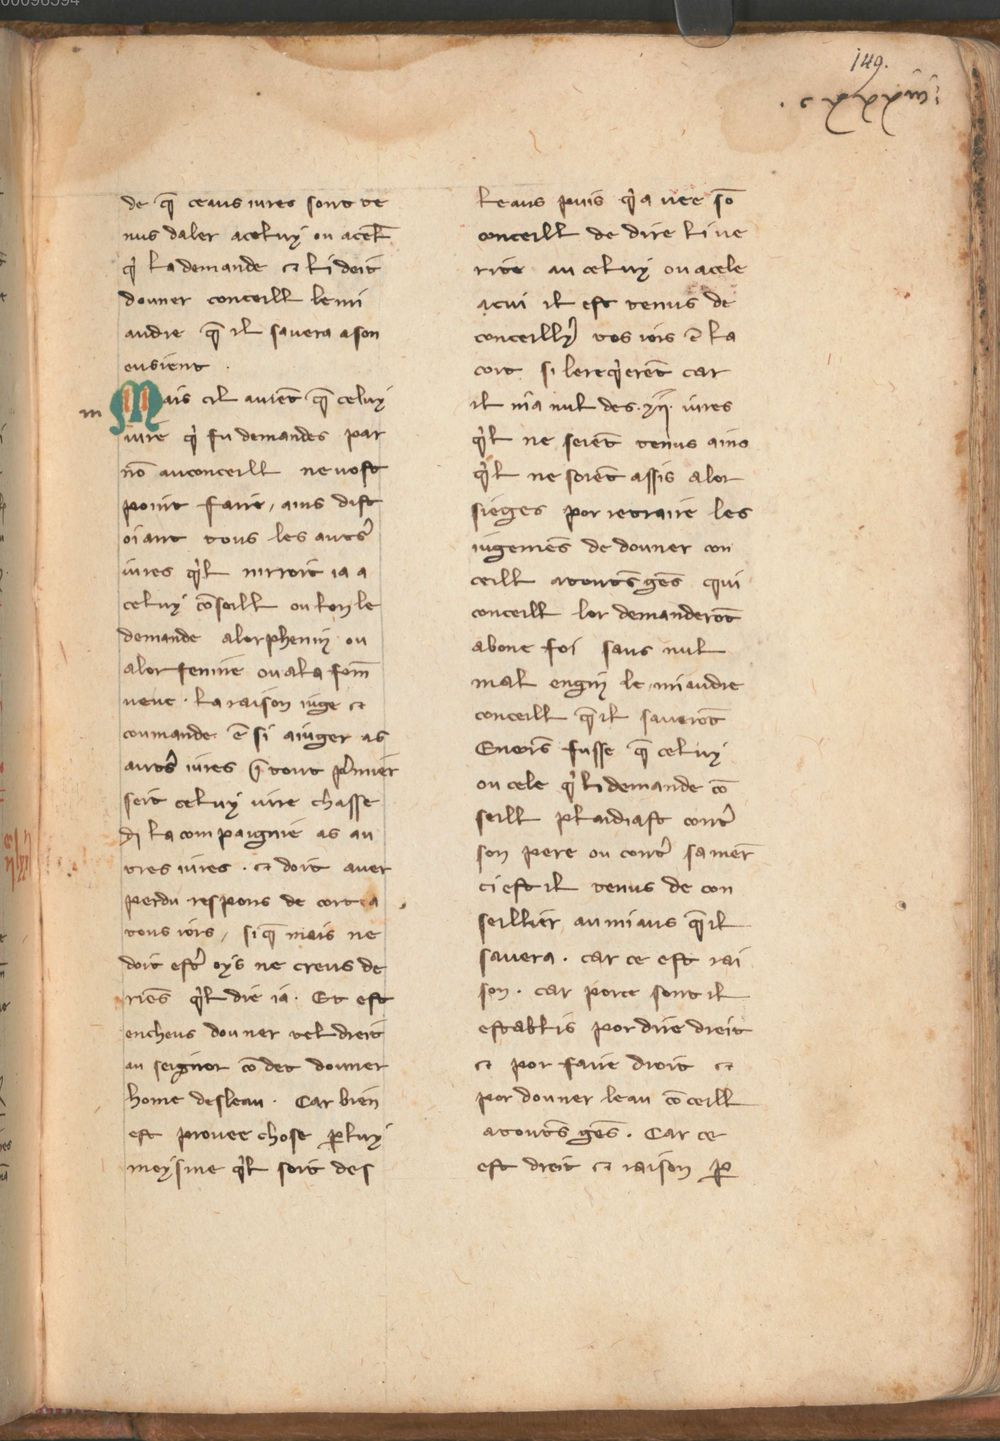 00096594
149.
de q̄ ceaus iures sont te
nus daler a celuy ou a cel̄
q̇ la demande ⁊ li deit
donner conceill le mi
audre q̄ il sauera a son
ensient .
m
Mais cil auiēt q̄ celuy
iure q̇ fu demandes par
nō au conceill ne vost
point faire, ains dist
oiant tous les autr̄s
iures q̇l nirroit ia a
celuy cōseill ou lon le
demande a lorphenin ou
a lorfenine ou a la fem̄
veue . La raison iuge ⁊
comande ē si a iuger as
autr̄s iures q̄ tout p̄mier
seit celuy iure chasse
di la compaignie as au
tres iures . ⁊ doit auer
perdu respons de cort a
tous iors, si q̄ mais ne
doit estr̄ oys ne creus de
riēs q̇l die ia . Et est
encheus donner tel dreit
au seignor cō det donner
home desleau . Car bien
est prouee chose ꝑ luy
meysme q̇l soit des
leaus puis q̇ a vee sō
conceill de dire li ve
rite au celuy ou a cele
a cui il est tenus de
conceillȳ tos iors ē la
cort si le req̇rēt car
il nia nul des .xii. iures
q̇l ne seiēt tenus ains
q̇l ne soiēt assis a lor
sieges por retraire les
iugemēs de donner con
ceill a toutēs gēs qui
conceill lor demanderōt
a bone foi sans nul
mal engin le miaudre
conceill q̄ il saverōt
Encors fusse q̄ celuy
ou cele q̇ li demande cō
seill plaidiast contr̄
son pere ou contr̄ sa mer̄
ci est il tenus de con
seillier au miaus q̄ il
sauera . car ce est rai
son . car porce sont il
establis por dire dreit
⁊ por faire droit ⁊
por donner leau cōceill
a toutēs gēs . Car ce
est dreit ⁊ raison ꝑ